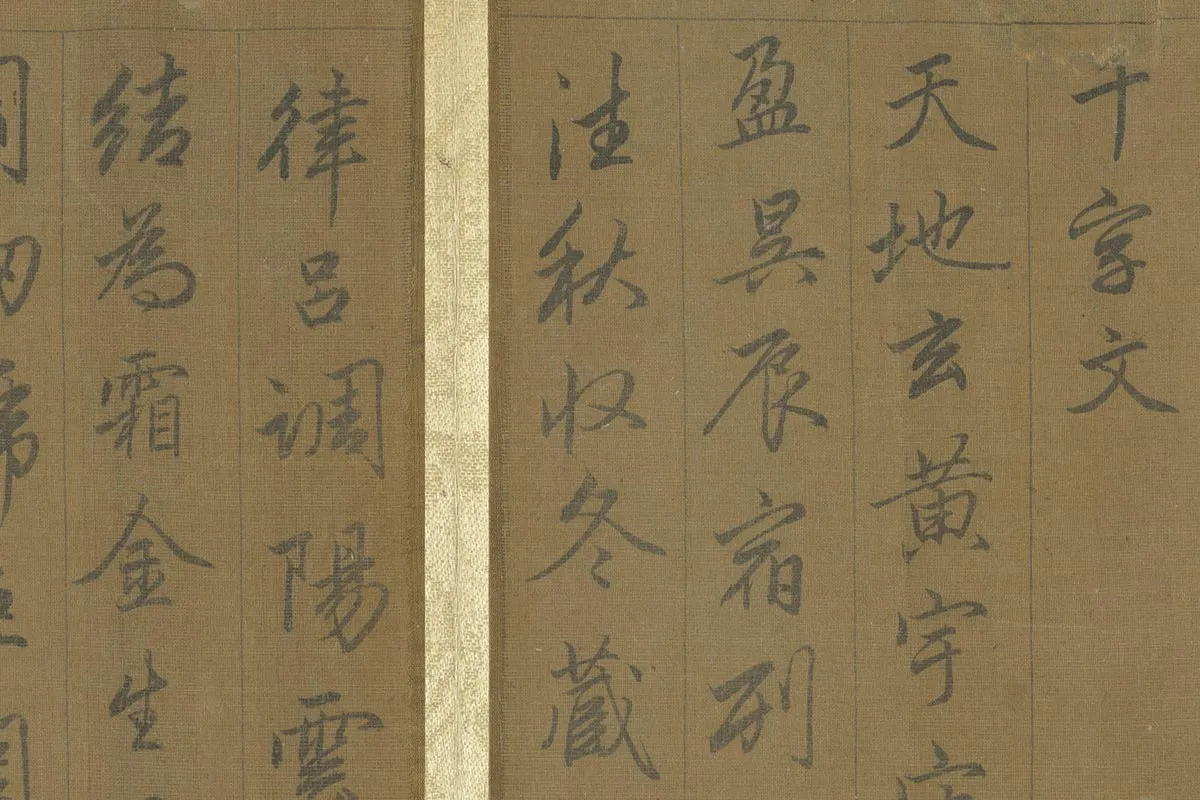 千字文
天地玄黄宇
盈昃辰宿列
往秋收冬藏
律呂調陽雲
結為霜金生